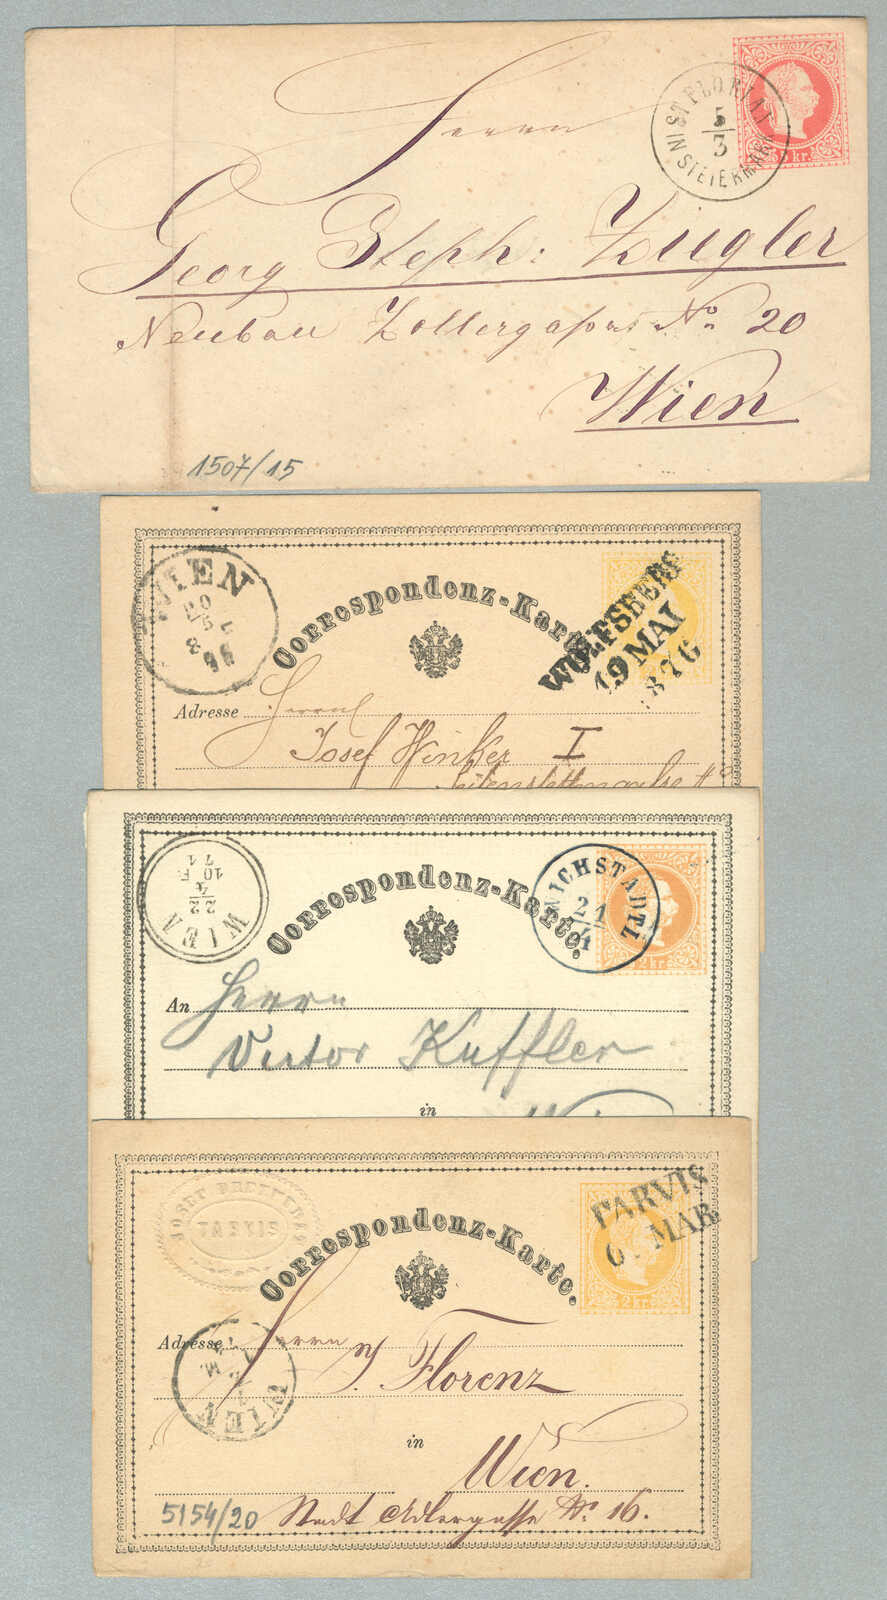 ST FLORIAN
5/3
IN STEIERMARK
5 kr.
Herrn
Georg Steph: Zugler
Neubau Zollergasse No 20
Wien
1507/15
WIEN
20
5
Correspondenz-Karte
WOLFSBERG
19 MAI
876
Adresse Herrn
Josef Winker I
WIEN
22
4
10 F.
71
Correspondenz-Karte.
21
4
2 kr.
An Herrn
Victor Kuffler
in
JOSEF
TARVIS
Correspondenz-Karte.
TARVIS
MAR.
2 kr.
Adresse Herrn
J. Florenz
WIEN
in
Wien.
5154/20 Stadt Adlergasse No 16.